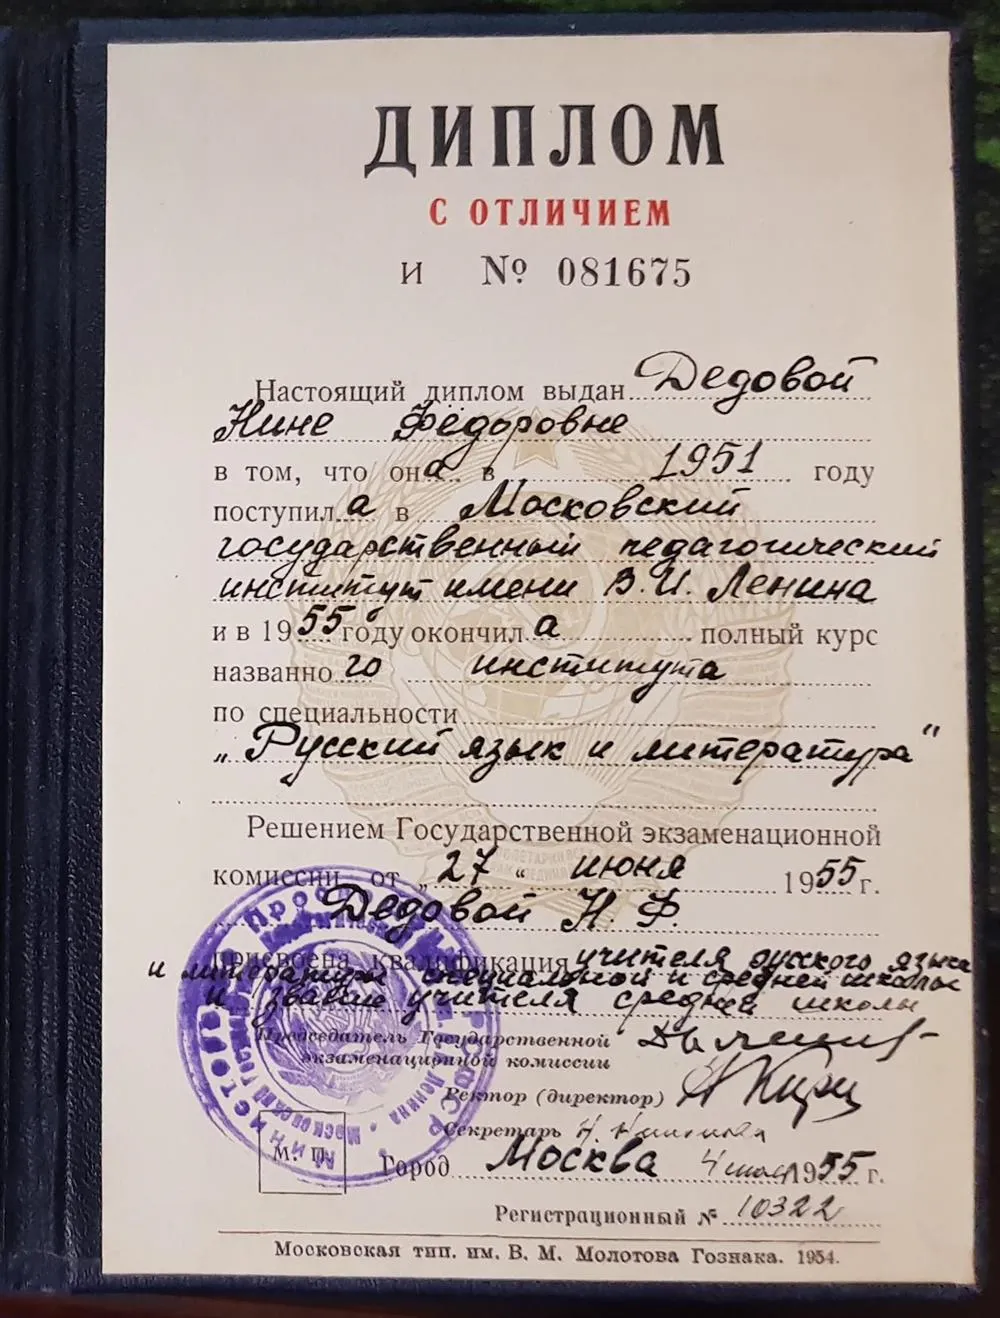 ДИПЛОМ
С ОТЛИЧИЕМ
И № 081675
Настоящий диплом выдан Дедовой
Нине Фёдоровне
в том, что она в 1951 году
поступила в Московский
государственный педагогический
институт имени В.И. Ленина
и в 1955 году окончила полный курс
названного института
по специальности
„Русский язык и литература"
Решением Государственной экзаменационной
комиссии от „27" июня 1955 г.
Дедовой Н. Ф.
присвоена квалификация учителя русского языка
и литературы специальной и средней школы
и звание учителя средней школы
Председатель Государственной
экзаменационной комиссии
Ректор (директор)
Секретарь
М. П.
Город Москва 4 1955 г.
Регистрационный № 10322
Московская тип. им. В. М. Молотова Гознака. 1954.